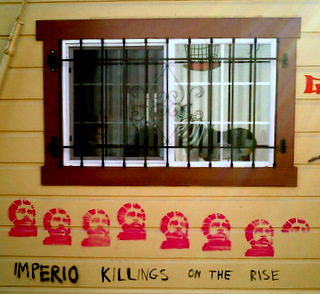 IMPERIO KILLINGS ON THE RISE